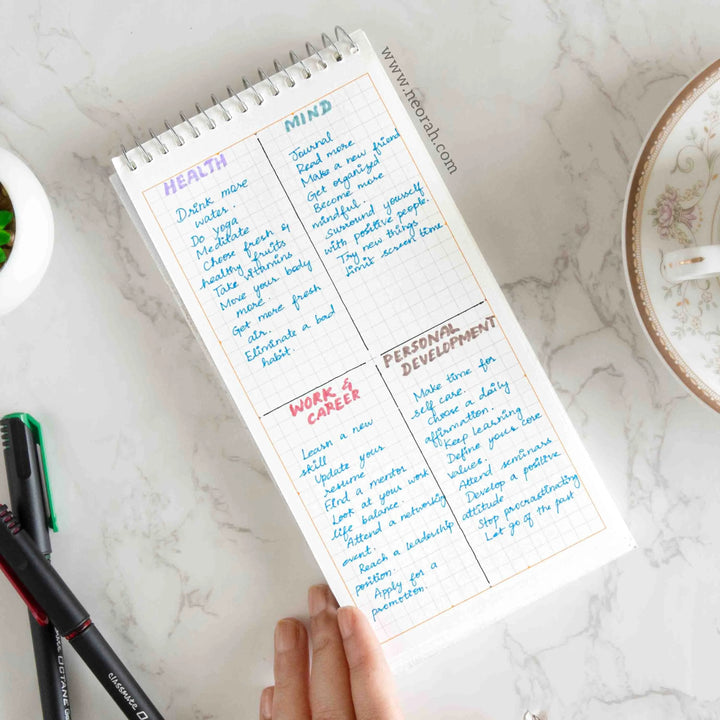 www.neorah.com
HEALTH
Drink more
water.
Do yoga
Meditate
Choose fresh &
healthy fruits
Take vitamins
Move your body
more.
Get more fresh
air.
Eliminate a bad
habit.
MIND
Journal
Read more
Make a new friend
Get organized
Become more
mindful.
Surround yourself
with positive people.
Try new things
limit screen time
WORK &
CAREER
Learn a new
skill
Update your
resume
Find a mentor
Look at your work
life balance.
Attend a networking
event.
Reach a leadership
position.
Apply for a
promotion.
PERSONAL
DEVELOPMENT
Make time for
self care.
Choose a daily
affirmation.
Keep learning
Define your core
values.
Attend seminars
Develop a positive
attitude
Stop procrastinating
Let go of the past
classmate OCTANE
OCTANE